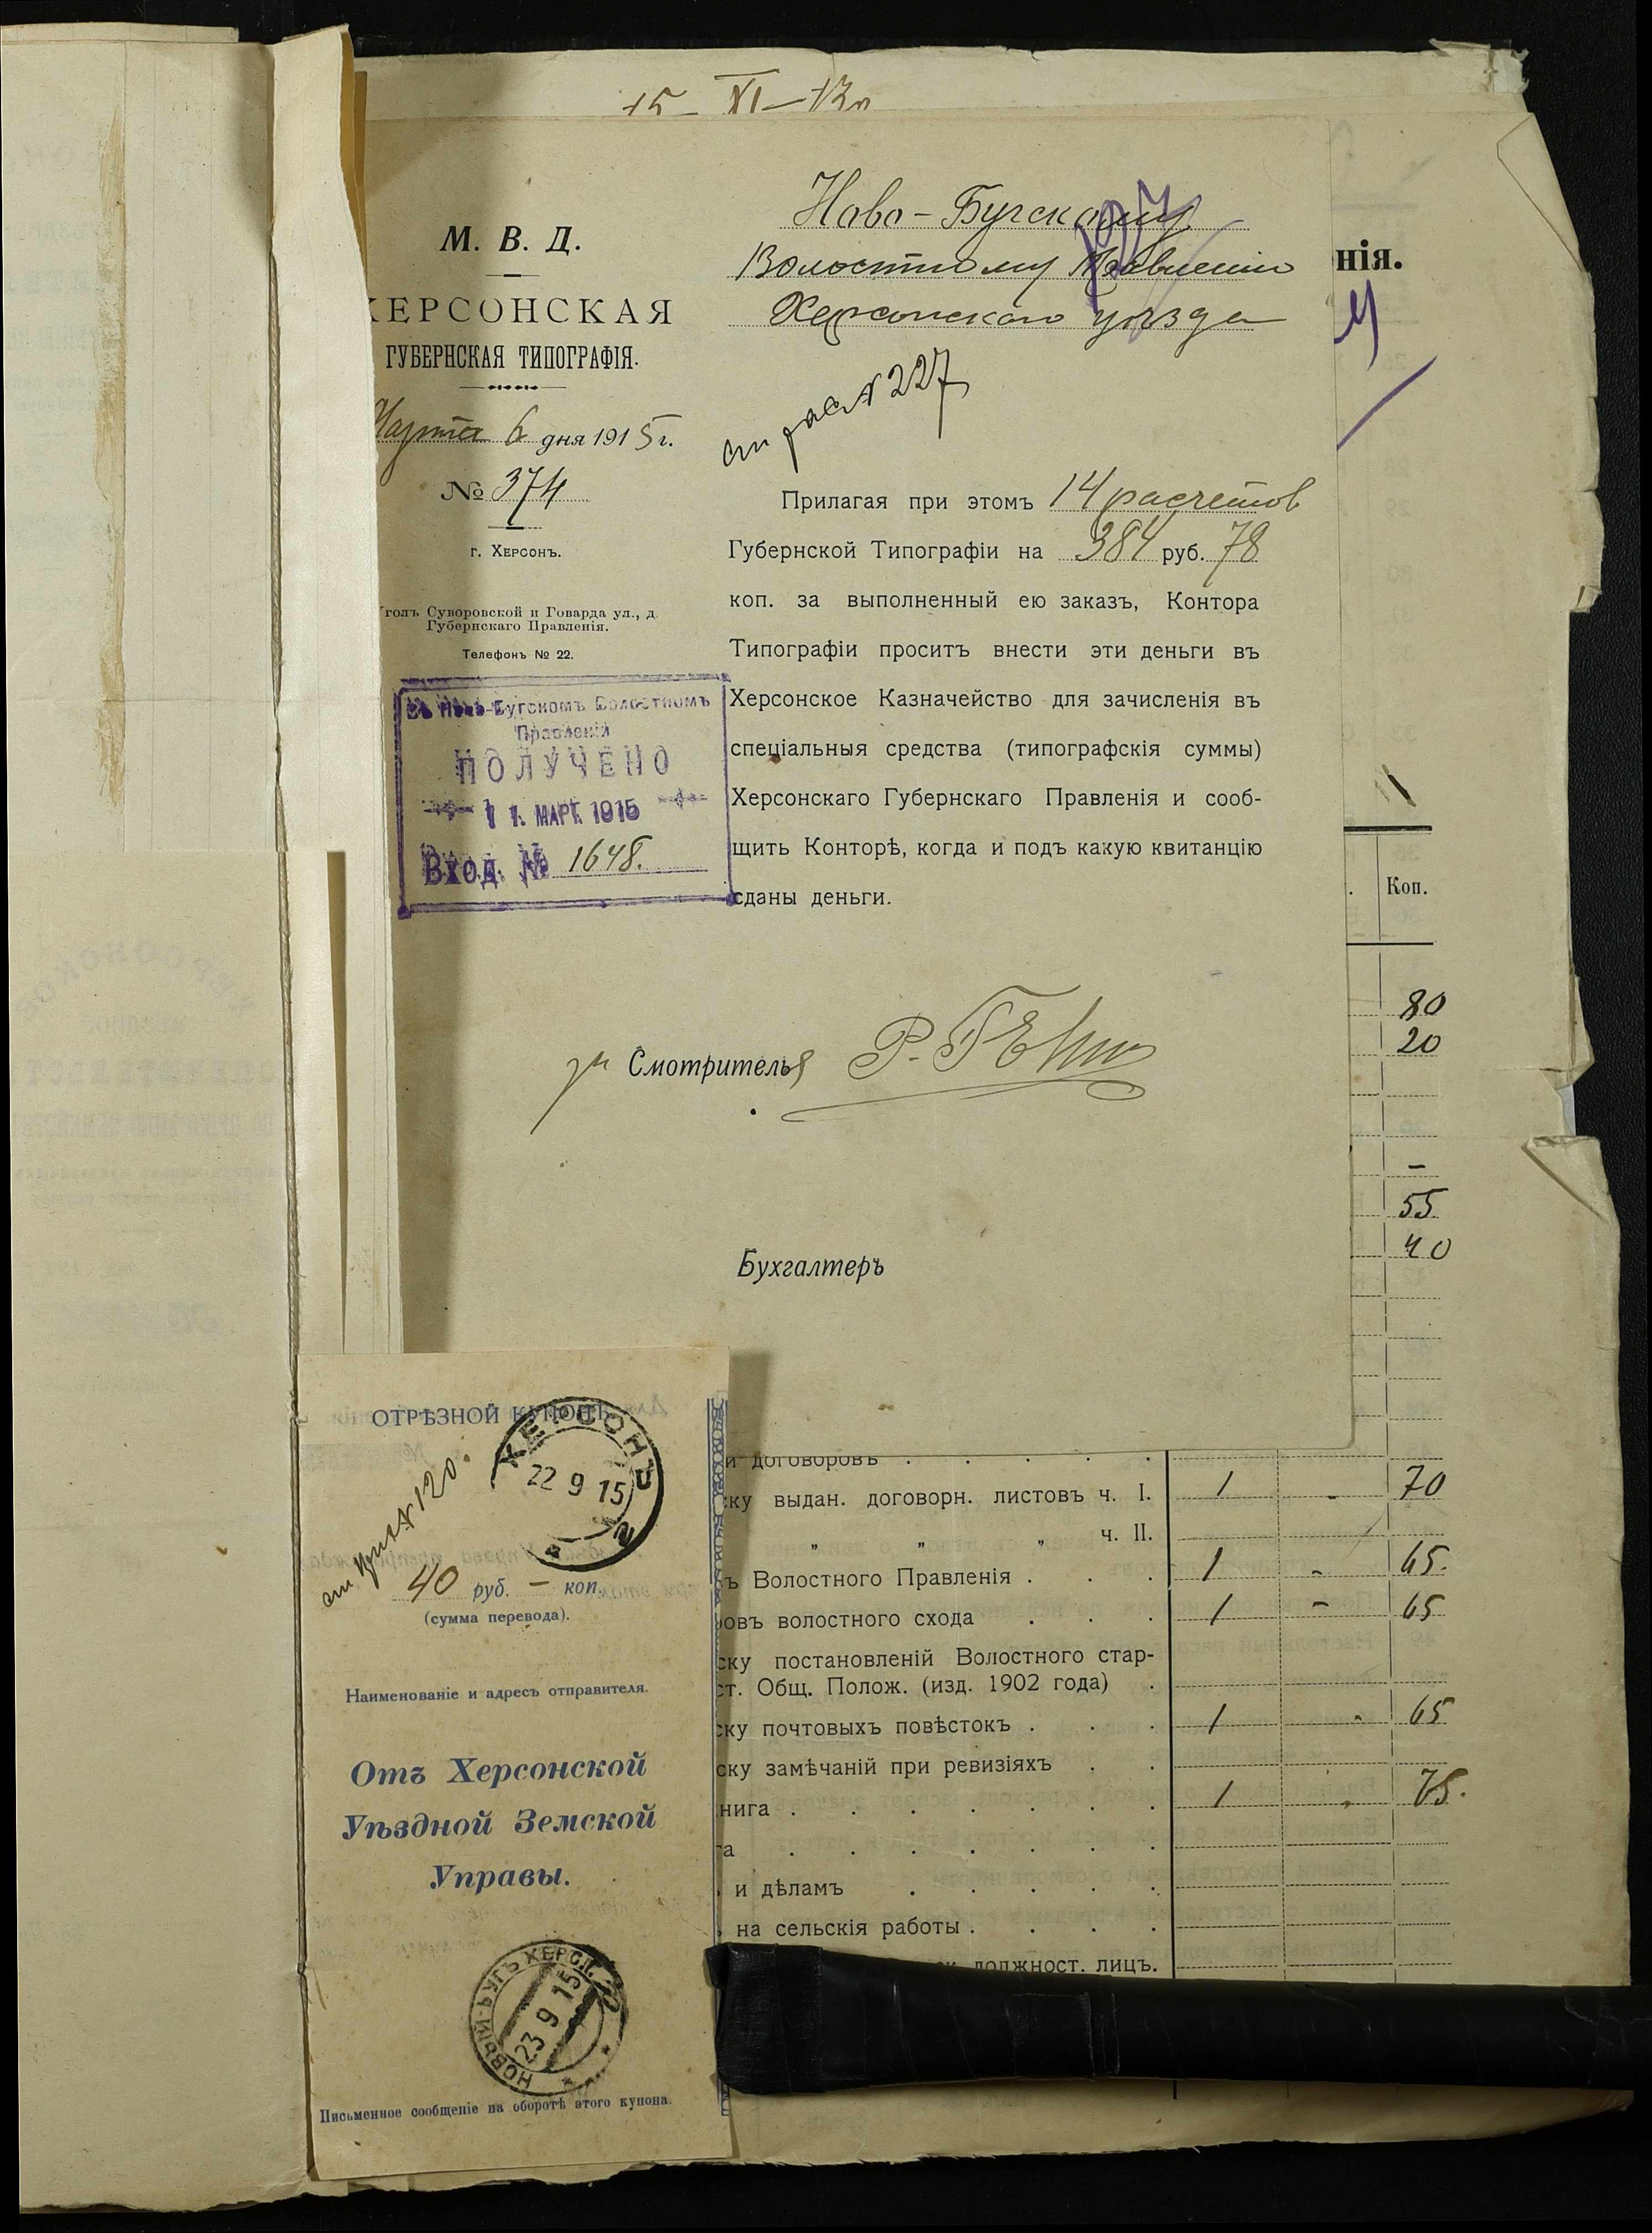 15 – XI – 13 г
М. В. Д.
ХЕРСОНСКАЯ
ГУБЕРНСКАЯ ТИПОГРАФІЯ.
Марта 6 дня 1915 г.
№ 374
г. Херсонъ.
Уголъ Суворовской и Говарда ул., д.
Губернскаго Правленія.
Телефонъ № 22.
Въ Ново-Бугскомъ Волостномъ
Правленіи
ПОЛУЧЕНО
11. МАРТ. 1915
Вход. № 1648.
Ново-Бугскому
Волостному Правленію
Херсонскаго уѣзда
ст рас № 227
Прилагая при этомъ 14 расчетов
Губернской Типографіи на 384 руб. 78
коп. за выполненный ею заказъ, Контора
Типографіи проситъ внести эти деньги въ
Херсонское Казначейство для зачисленія въ
спеціальныя средства (типографскія суммы)
Херсонскаго Губернскаго Правленія и сооб-
щить Конторѣ, когда и подъ какую квитанцію
сданы деньги.
за Смотрителя
Бухгалтеръ
нія.
Коп.
80
20
–
55
40
и договоровъ
ску выдан. договорн. листовъ ч. I. 1 - 70
„ „ „ ч. II.
ъ Волостного Правленія . 1 - 65.
ровъ волостного схода 1 - 65
ску постановленій Волостного стар-
ст. Общ. Полож. (изд. 1902 года)
ску почтовыхъ повѣстокъ . 1 - 65
ску замѣчаній при ревизіяхъ
нига . 1 - 75.
га
и дѣламъ
на сельскія работы .
должност. лицъ.
ОТРѢЗНОЙ КУПОНЪ
ХЕРСОНЪ
22 9 15
2
ст прих № 120.
40 руб. – коп.
(сумма перевода).
Наименованіе и адресъ отправителя.
Отъ Херсонской
Уѣздной Земской
Управы.
НОВЫЙ-БУГЪ ХЕРС. Г.
23 9 15
Письменное сообщеніе на оборотѣ этого купона.